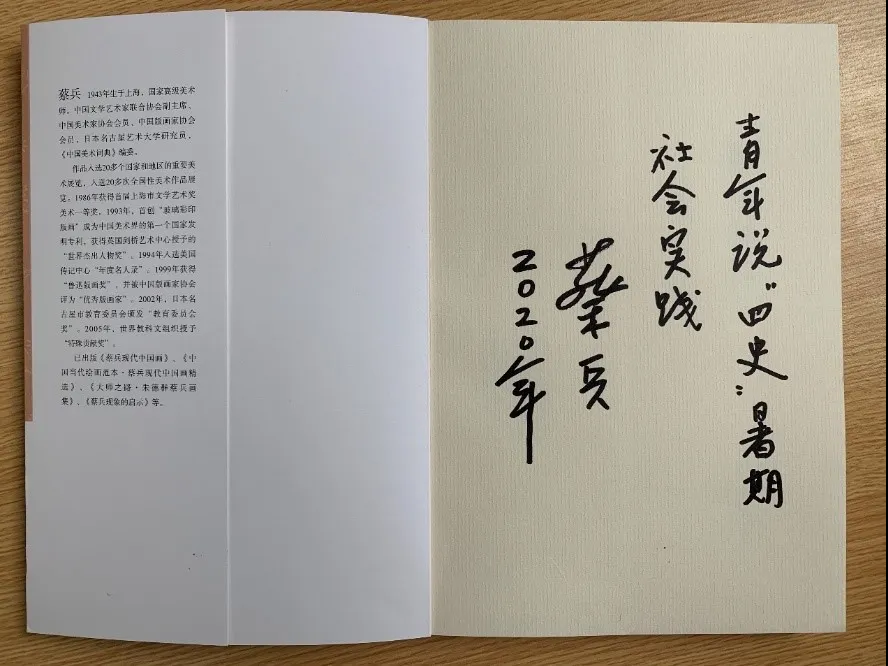 蔡兵 1943年生于上海，国家高级美术
师。中国文学艺术家联合协会副主席、
中国美术家协会会员、中国版画家协会
会员，日本名古屋艺术大学研究员，
《中国美术词典》编委。
作品入选20多个国家和地区的重要美
术展览，入选20多次全国性美术作品展
览；1986年获得首届上海市文学艺术奖
美术一等奖，1993年，首创“玻璃彩印
版画”成为中国美术界的第一个国家发
明专利，获得英国剑桥艺术中心授予的
“世界杰出人物奖”。1994年入选美国
传记中心“年度名人录”。1999年获得
“鲁迅版画奖”，并被中国版画家协会
评为“优秀版画家”。2002年，日本名
古屋市教育委员会颁发“教育委员会
奖”。2005年，世界教科文组织授予
“特殊贡献奖”。
已出版《蔡兵现代中国画》、《中
国当代绘画范本·蔡兵现代中国画精
选》、《大师之路·朱德群蔡兵画
集》、《蔡兵现象的启示》等。
青年说“四史”暑期
社会实践
蔡兵
2020年